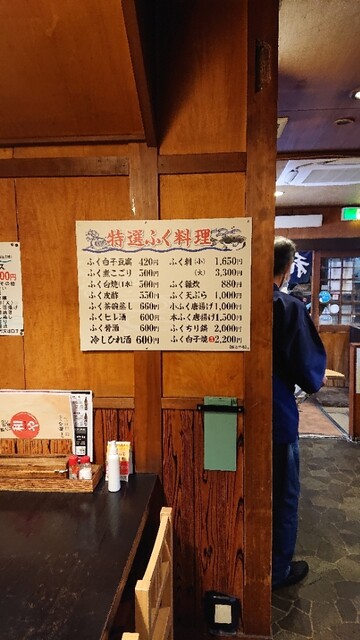 特選ふく料理
ふく白子豆腐 420円
ふく煮こごり 500円
ふく白焼(1本) 500円
ふく皮酢 550円
ふく茶碗蒸し 660円
ふくヒレ酒 600円
ふく骨酒 600円
冷しひれ酒 600円
ふく刺(小) 1,650円
(大) 3,300円
ふく雑炊 880円
ふく天ぷら 1,000円
小ふく唐揚げ 1,000円
本ふく唐揚げ 1,500円
ふくちり鍋 2,000円
ふく白子焼 2,200円